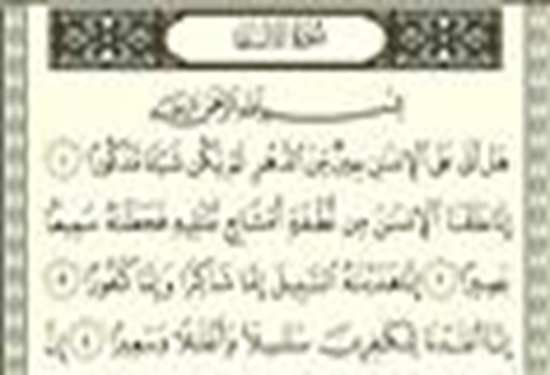 سورة الإنسان
بسم الله الرحمن الرحيم
هَلْ أَتَىٰ عَلَى الْإِنسَانِ حِينٌ مِّنَ الدَّهْرِ لَمْ يَكُن شَيْئًا مَّذْكُورًا ١
إِنَّا خَلَقْنَا الْإِنسَانَ مِن نُّطْفَةٍ أَمْشَاجٍ نَّبْتَلِيهِ فَجَعَلْنَاهُ سَمِيعًا
بَصِيرًا ٢ إِنَّا هَدَيْنَاهُ السَّبِيلَ إِمَّا شَاكِرًا وَإِمَّا كَفُورًا ٣
إِنَّا أَعْتَدْنَا لِلْكَافِرِينَ سَلَاسِلَا وَأَغْلَالًا وَسَعِيرًا ٤ إِنَّ